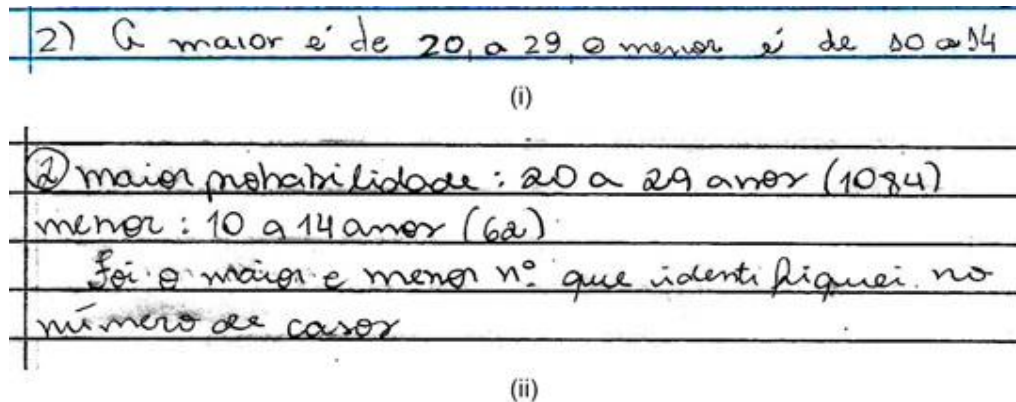 2) A maior é de 20, a 29, o menor é de 10 a 14
(i)
② maior probabilidade: 20 a 29 anos (1084)
menor: 10 a 14 anos (62).
Foi o maior e menor nº que identifiquei no
número de casos
(ii)